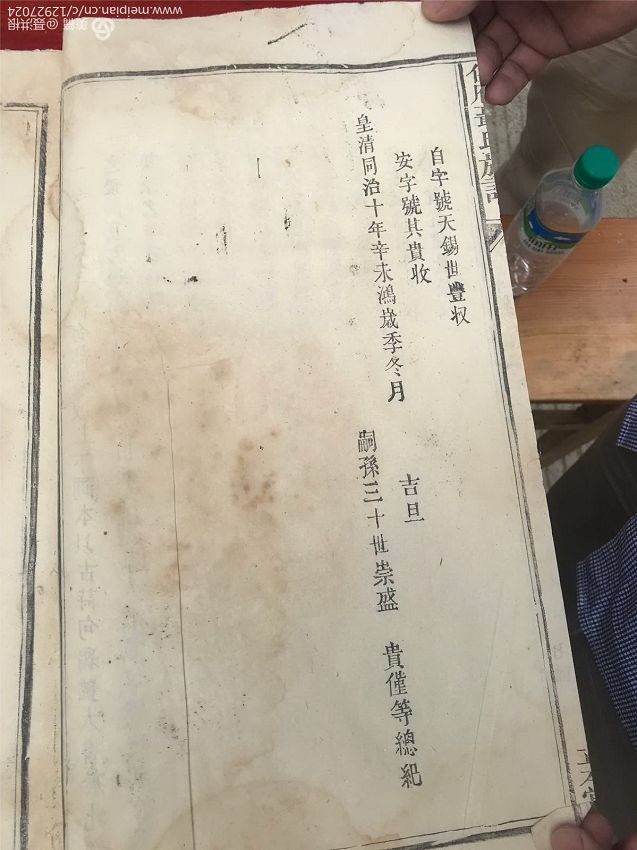 自字號天錫世豐収
安字號其貴收
皇清同治十年辛未鴻歲季冬月 吉旦
嗣孫三十世崇盛 貴僅等總紀
美篇 @聂洪根
www.meipian.cn/c/12927024